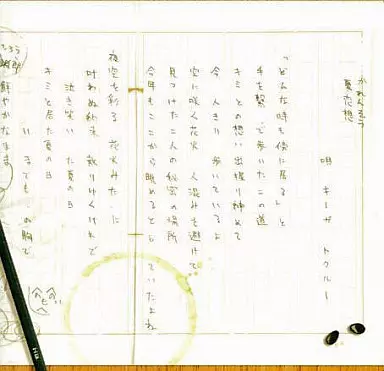 かれんどつ
夏花想
唄 キーザ トクルー
「どんな時も傍に居る」と
手を繋いで歩いたこの道
キミとの想い出握り締めて
今 一人きり 歩いているよ
空に咲く花火 人混みを避けて
見つけた二人の秘密の場所
今年もここから眺めると
していたよね
夜空を彩る 花火みたいに
叶わぬ約束 散りゆくけれど
泣き笑いした夏の日
キミと居た夏の日
いまでもこの胸で
鮮やかなまま